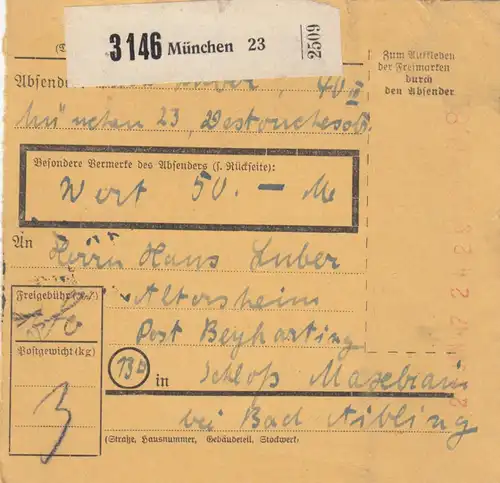 3146 München 23
2509
Absender
40 II
München 23,
Besondere Vermerke des Absenders (s. Rückseite):
Wert 50.- M
An Herrn Hans Huber
Altersheim
Post Beyharting
13b in Schloß Maxlrain
bei Bad Aibling
Freigebühr
Postgewicht (kg)
3
(Straße, Hausnummer, Gebäudeteil, Stockwerk)
Zum Aufkleben
der Freimarken
durch
den Absender